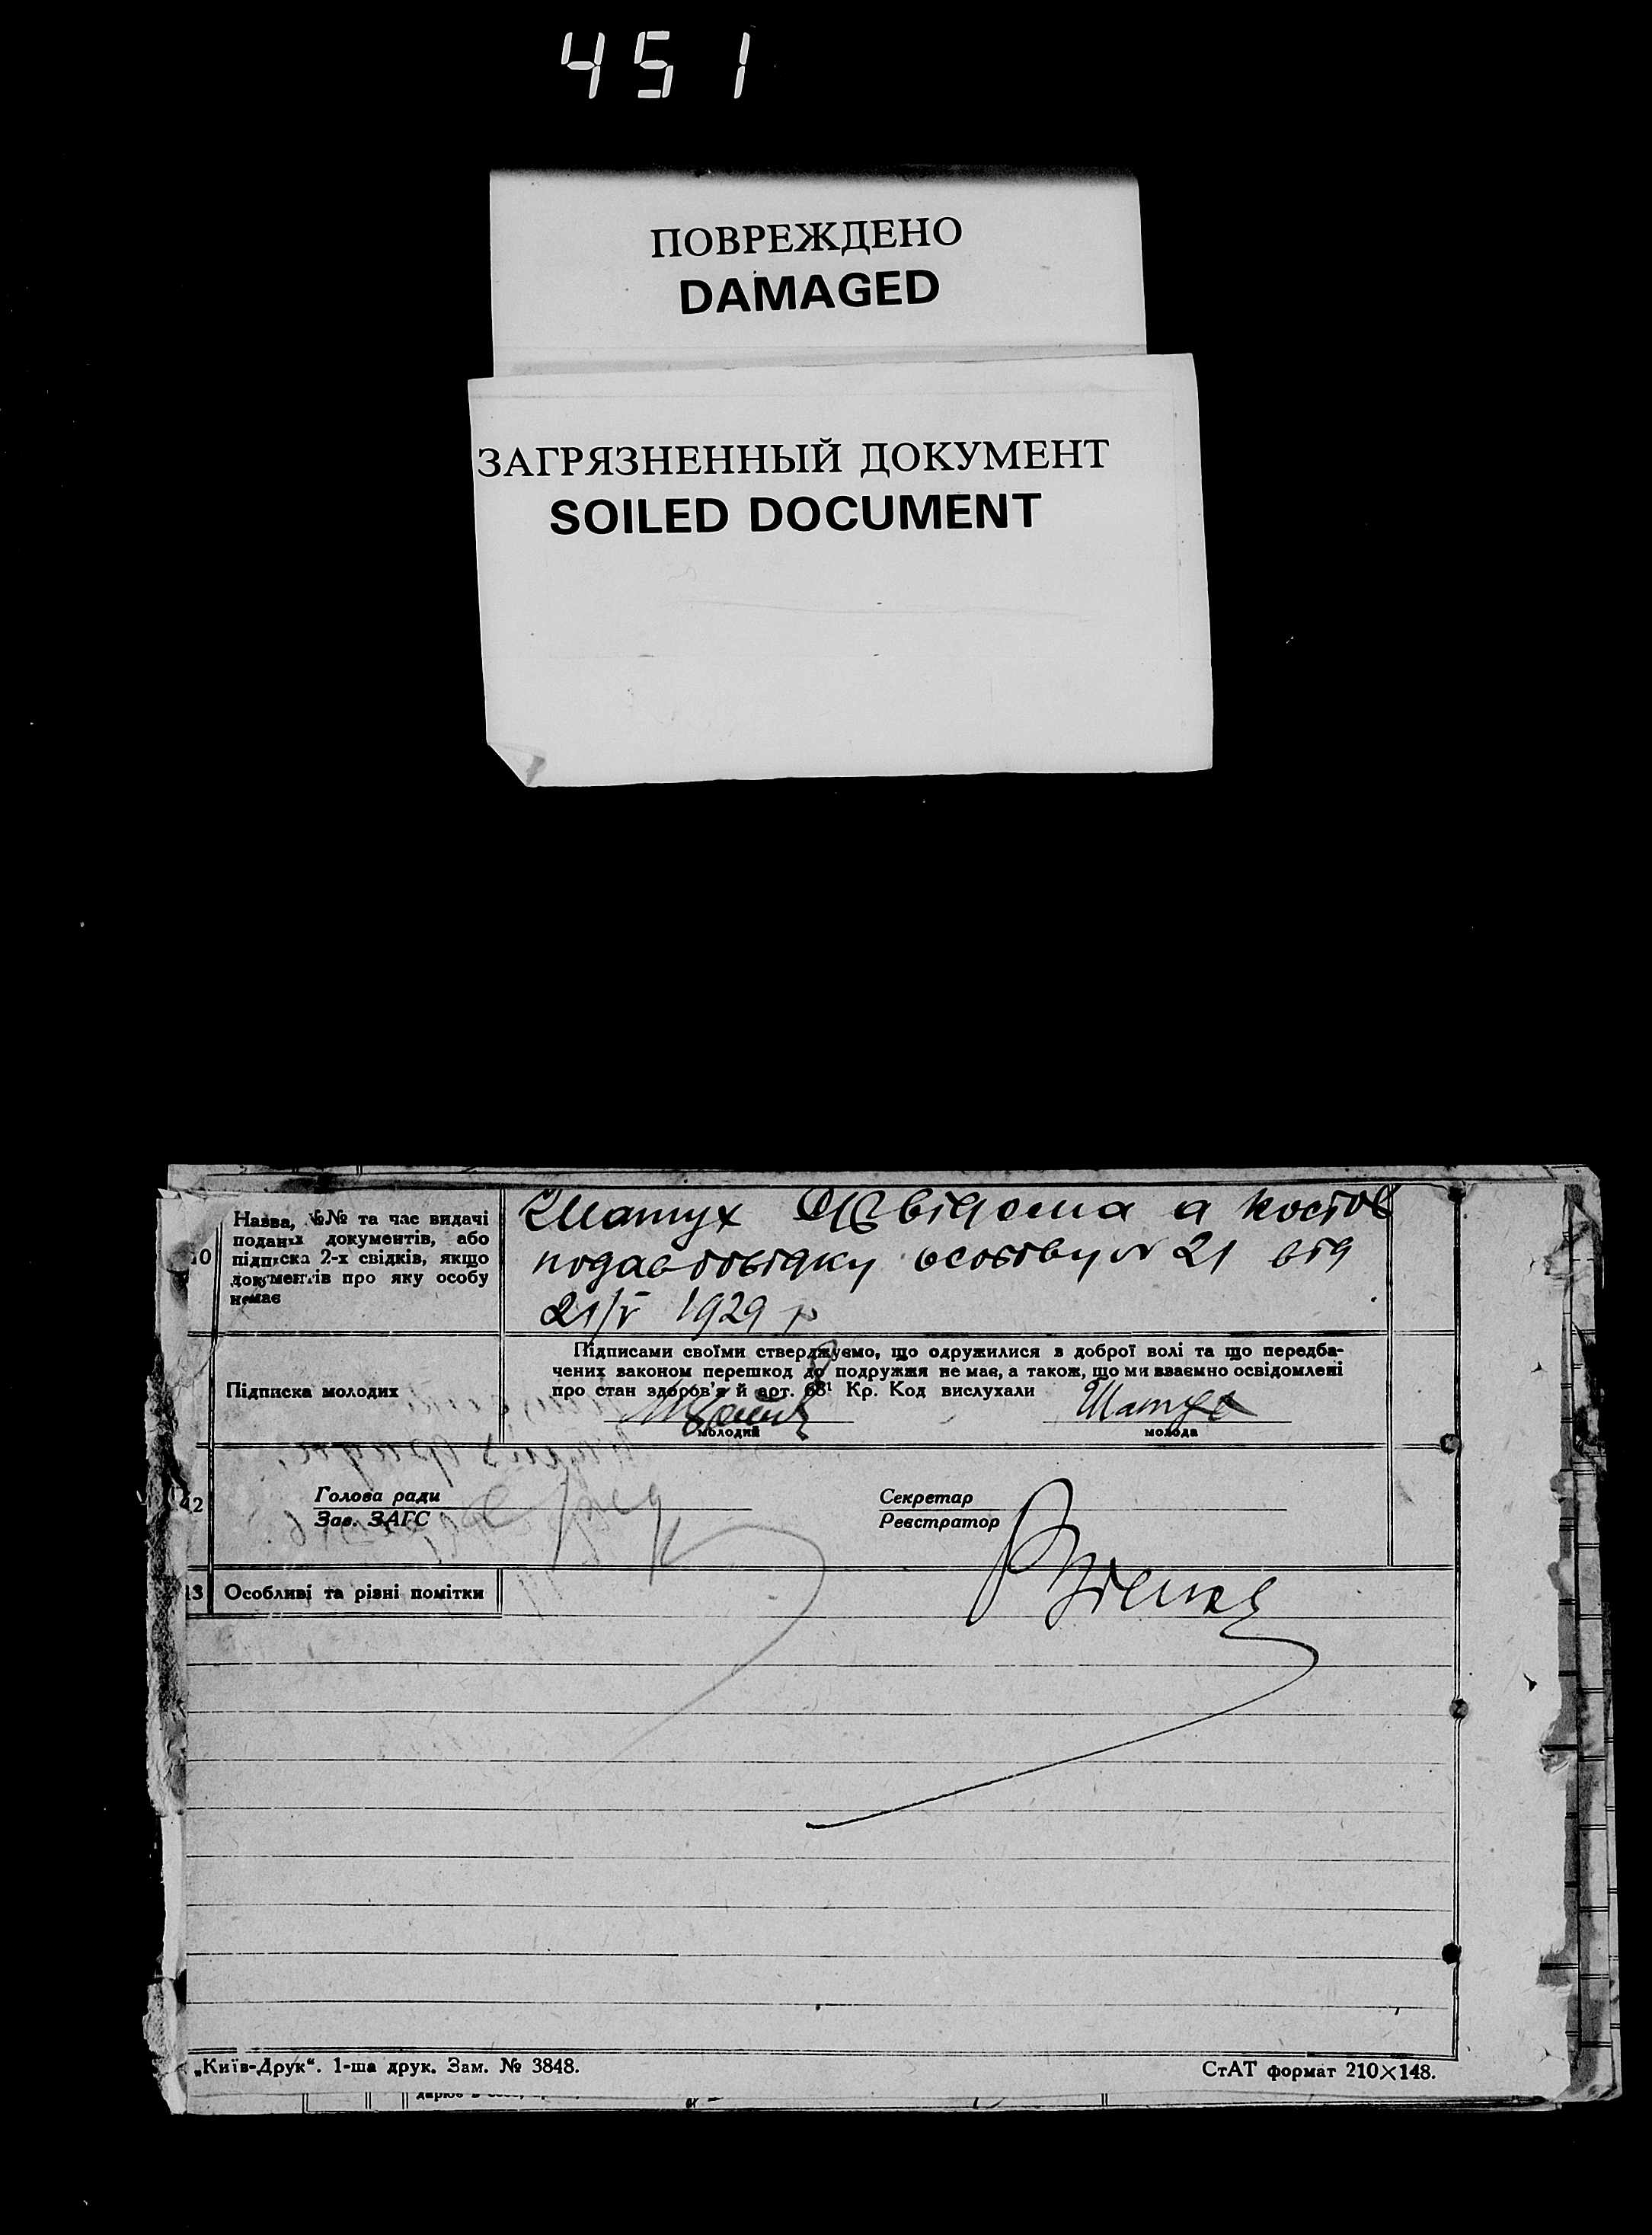 451
ПОВРЕЖДЕНО
DAMAGED
ЗАГРЯЗНЕННЫЙ ДОКУМЕНТ
SOILED DOCUMENT
10
Назва, №№ та час видачі
поданих документів, або
підписка 2-х свідків, якщо
документів про яку особу
немає
Шатух відома а Костов
подав довідку особову № 21 від
21/V 1929 р
Підписка молодих
Підписами своїми стверджуємо, що одружилися в доброї волі та що передба-
чених законом перешкод до подружжя не має, а також, що ми взаємно освідомлені
про стан здоров'я й арт. 68¹ Кр. Код вислухали
Шатух
молодий
молода
12
Голова ради
Зав. ЗАГС
Секретар
Реєстратор
13
Особливі та різні помітки
„Київ-Друк“. 1-ша друк. Зам. № 3848.
СтАТ формат 210×148.